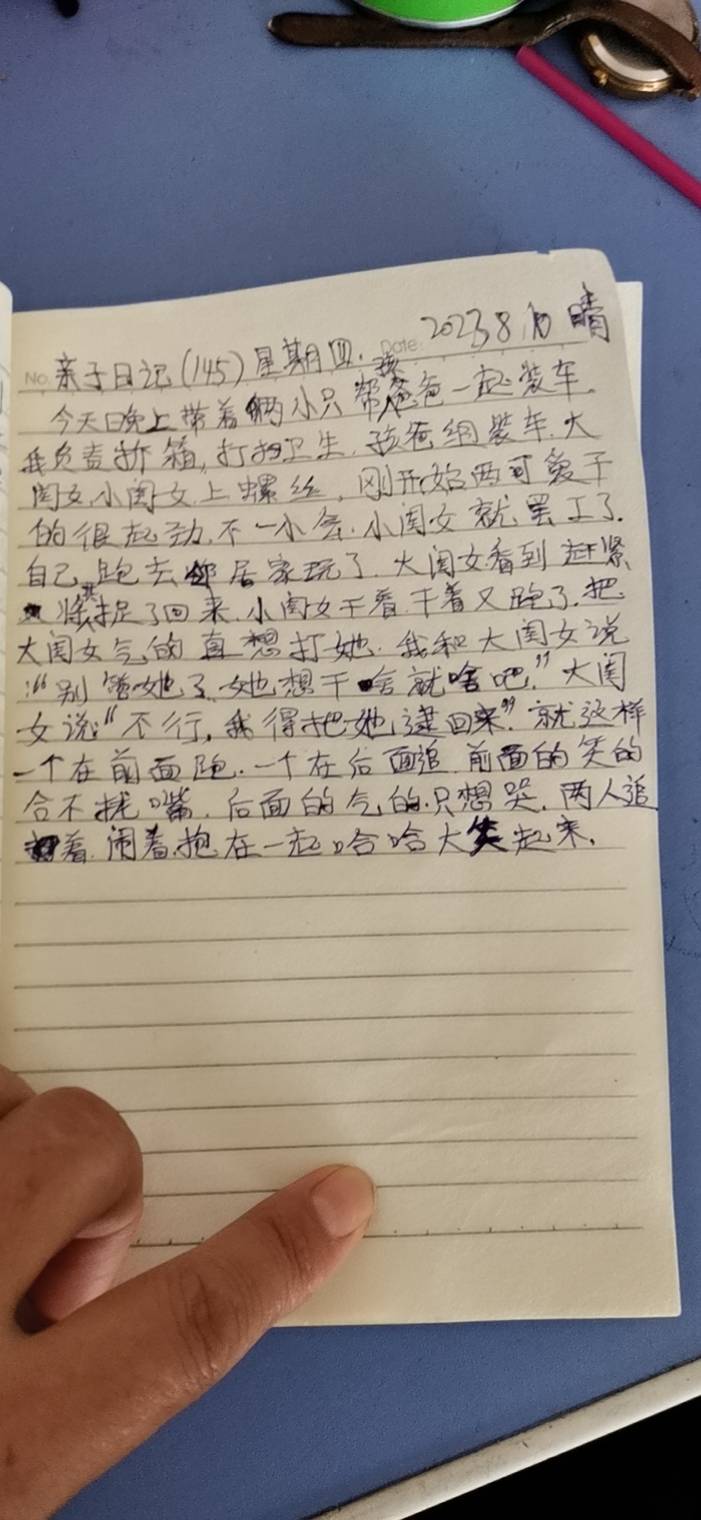 2023.8.10 晴
No. 亲子日记(145)星期四. Date:
今天晚上带着俩小只帮孩爸爸一起装车.
我负责拆箱,打扫卫生.孩爸组装车.大
闺女.小闺女上螺丝.刚开始两可爱干
的很起劲.不一小会.小闺女就罢工了.
自己跑去邻居家玩了.大闺女看到赶紧
将其捉了回来.小闺女干着干着又跑了.把
大闺女气的直想打她.我和大闺女说
:“别管她了.她想干啥就啥吧.”大闺
女说:“不行,我得把她逮回来”.就这样
一个在前面跑.一个在后面追.前面的笑的
合不拢嘴.后面的气的只想哭.两人追
着.闹着.抱在一起哈哈大笑起来.